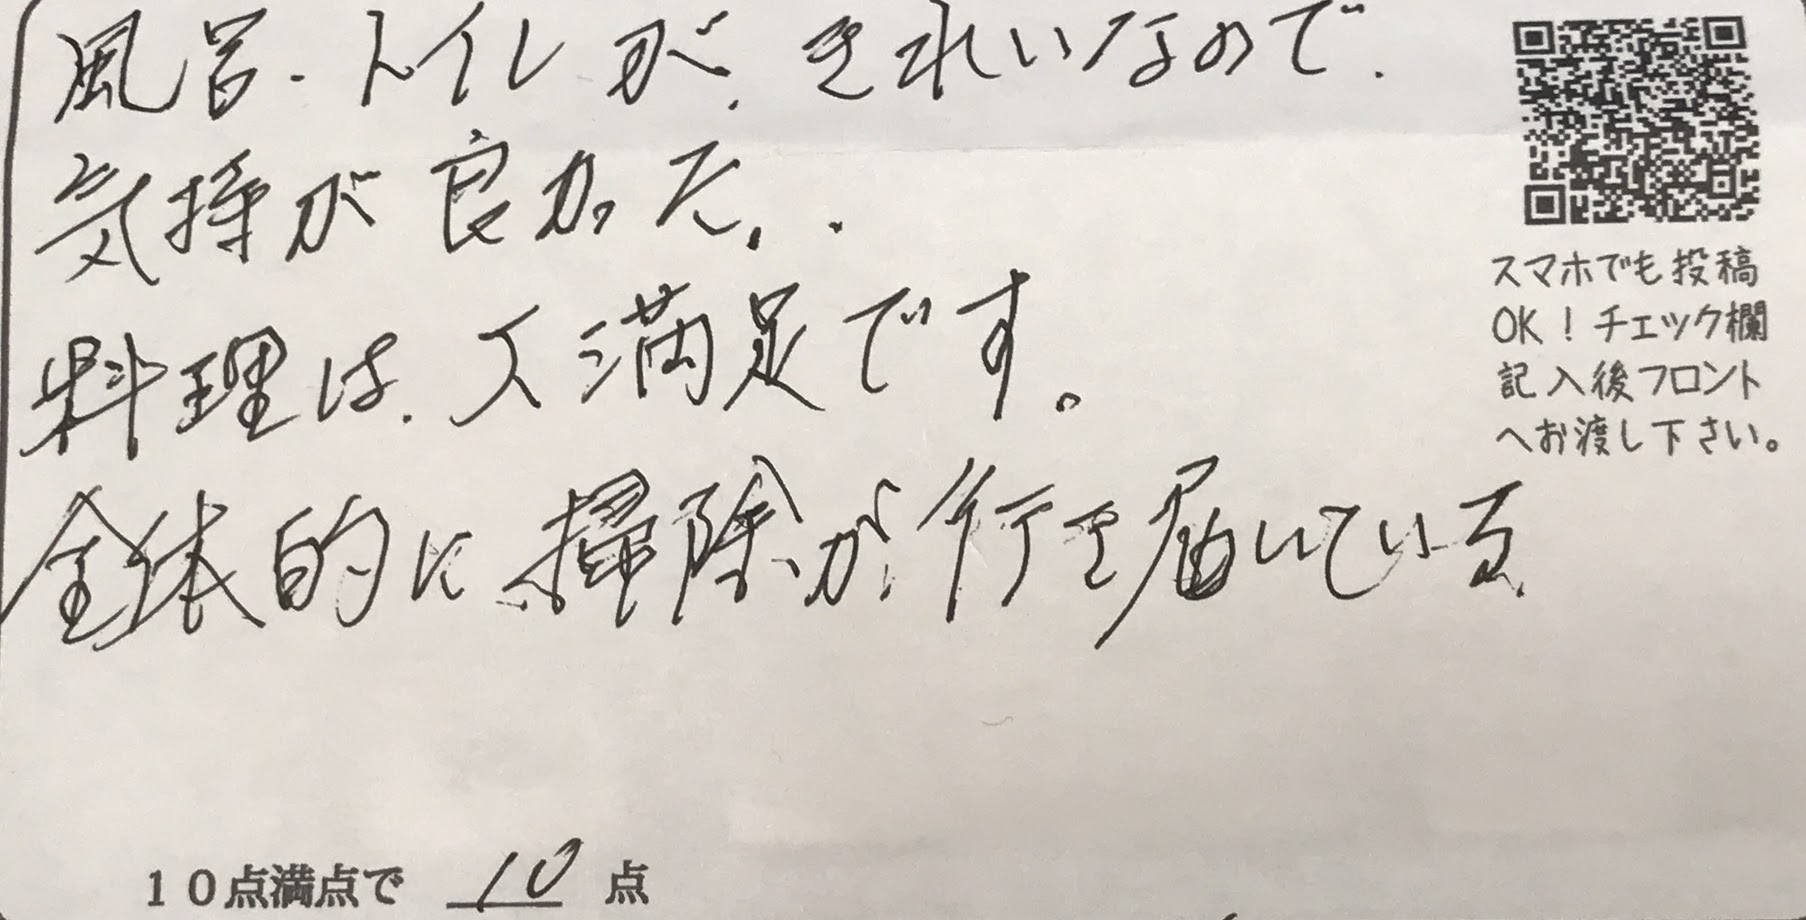 風呂・トイレが、きれいなので、
気持が良かった。
料理は、大満足です。
全体的に掃除が行き届いている
スマホでも投稿
OK!チェック欄
記入後フロント
へお渡し下さい。
10点満点で 10 点